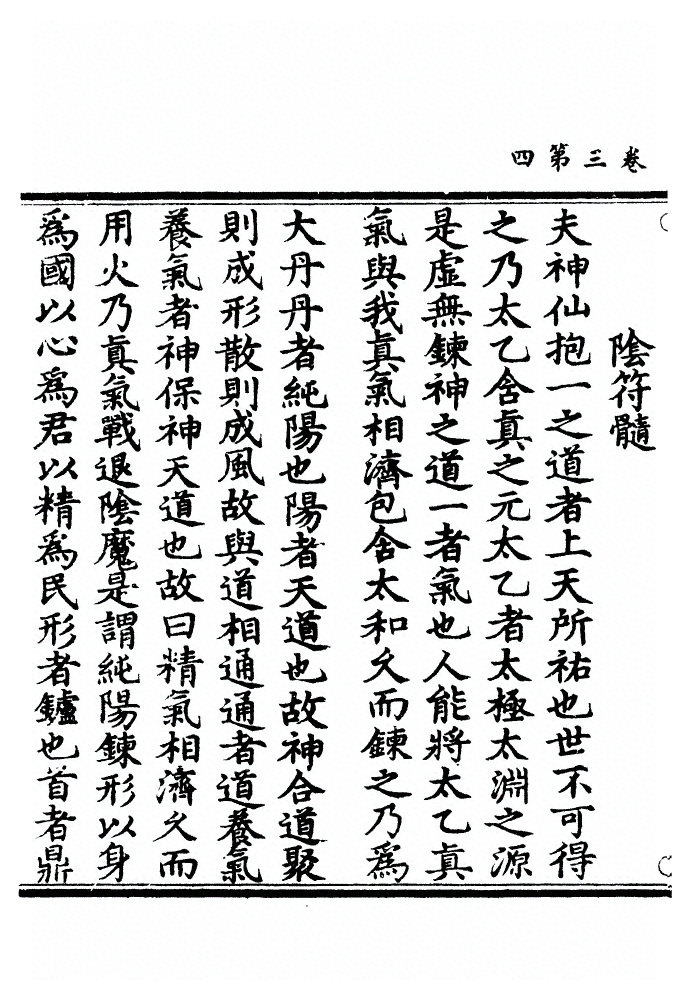 卷三第四
陰符髓
夫神仙抱一之道者上天所祐也世不可得
之乃太乙含真之元太乙者太極太淵之源
是虛無鍊神之道一者氣也人能將太乙真
氣與我真氣相濟包含太和久而鍊之乃為
大丹丹者純陽也陽者天道也故神合道聚
則成形散則成風故與道相通通者道養氣
養氣者神保神天道也故曰精氣相濟久而
用火乃真氣戰退陰魔是謂純陽鍊形以身
為國以心為君以精為民形者鑪也首者鼎